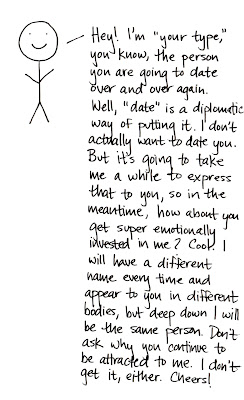 Hey! I'm "your type,"
you know, the person
you are going to date
over and over again.
Well, "date" is a diplomatic
way of putting it. I don't
actually want to date you.
But it's going to take
me a while to express
that to you, so in the
meantime, how about you
get super emotionally
invested in me? Cool. I
will have a different
name every time and
appear to you in different
bodies, but deep down I will
be the same person. Don't
ask why you continue to
be attracted to me. I don't
get it, either. Cheers!